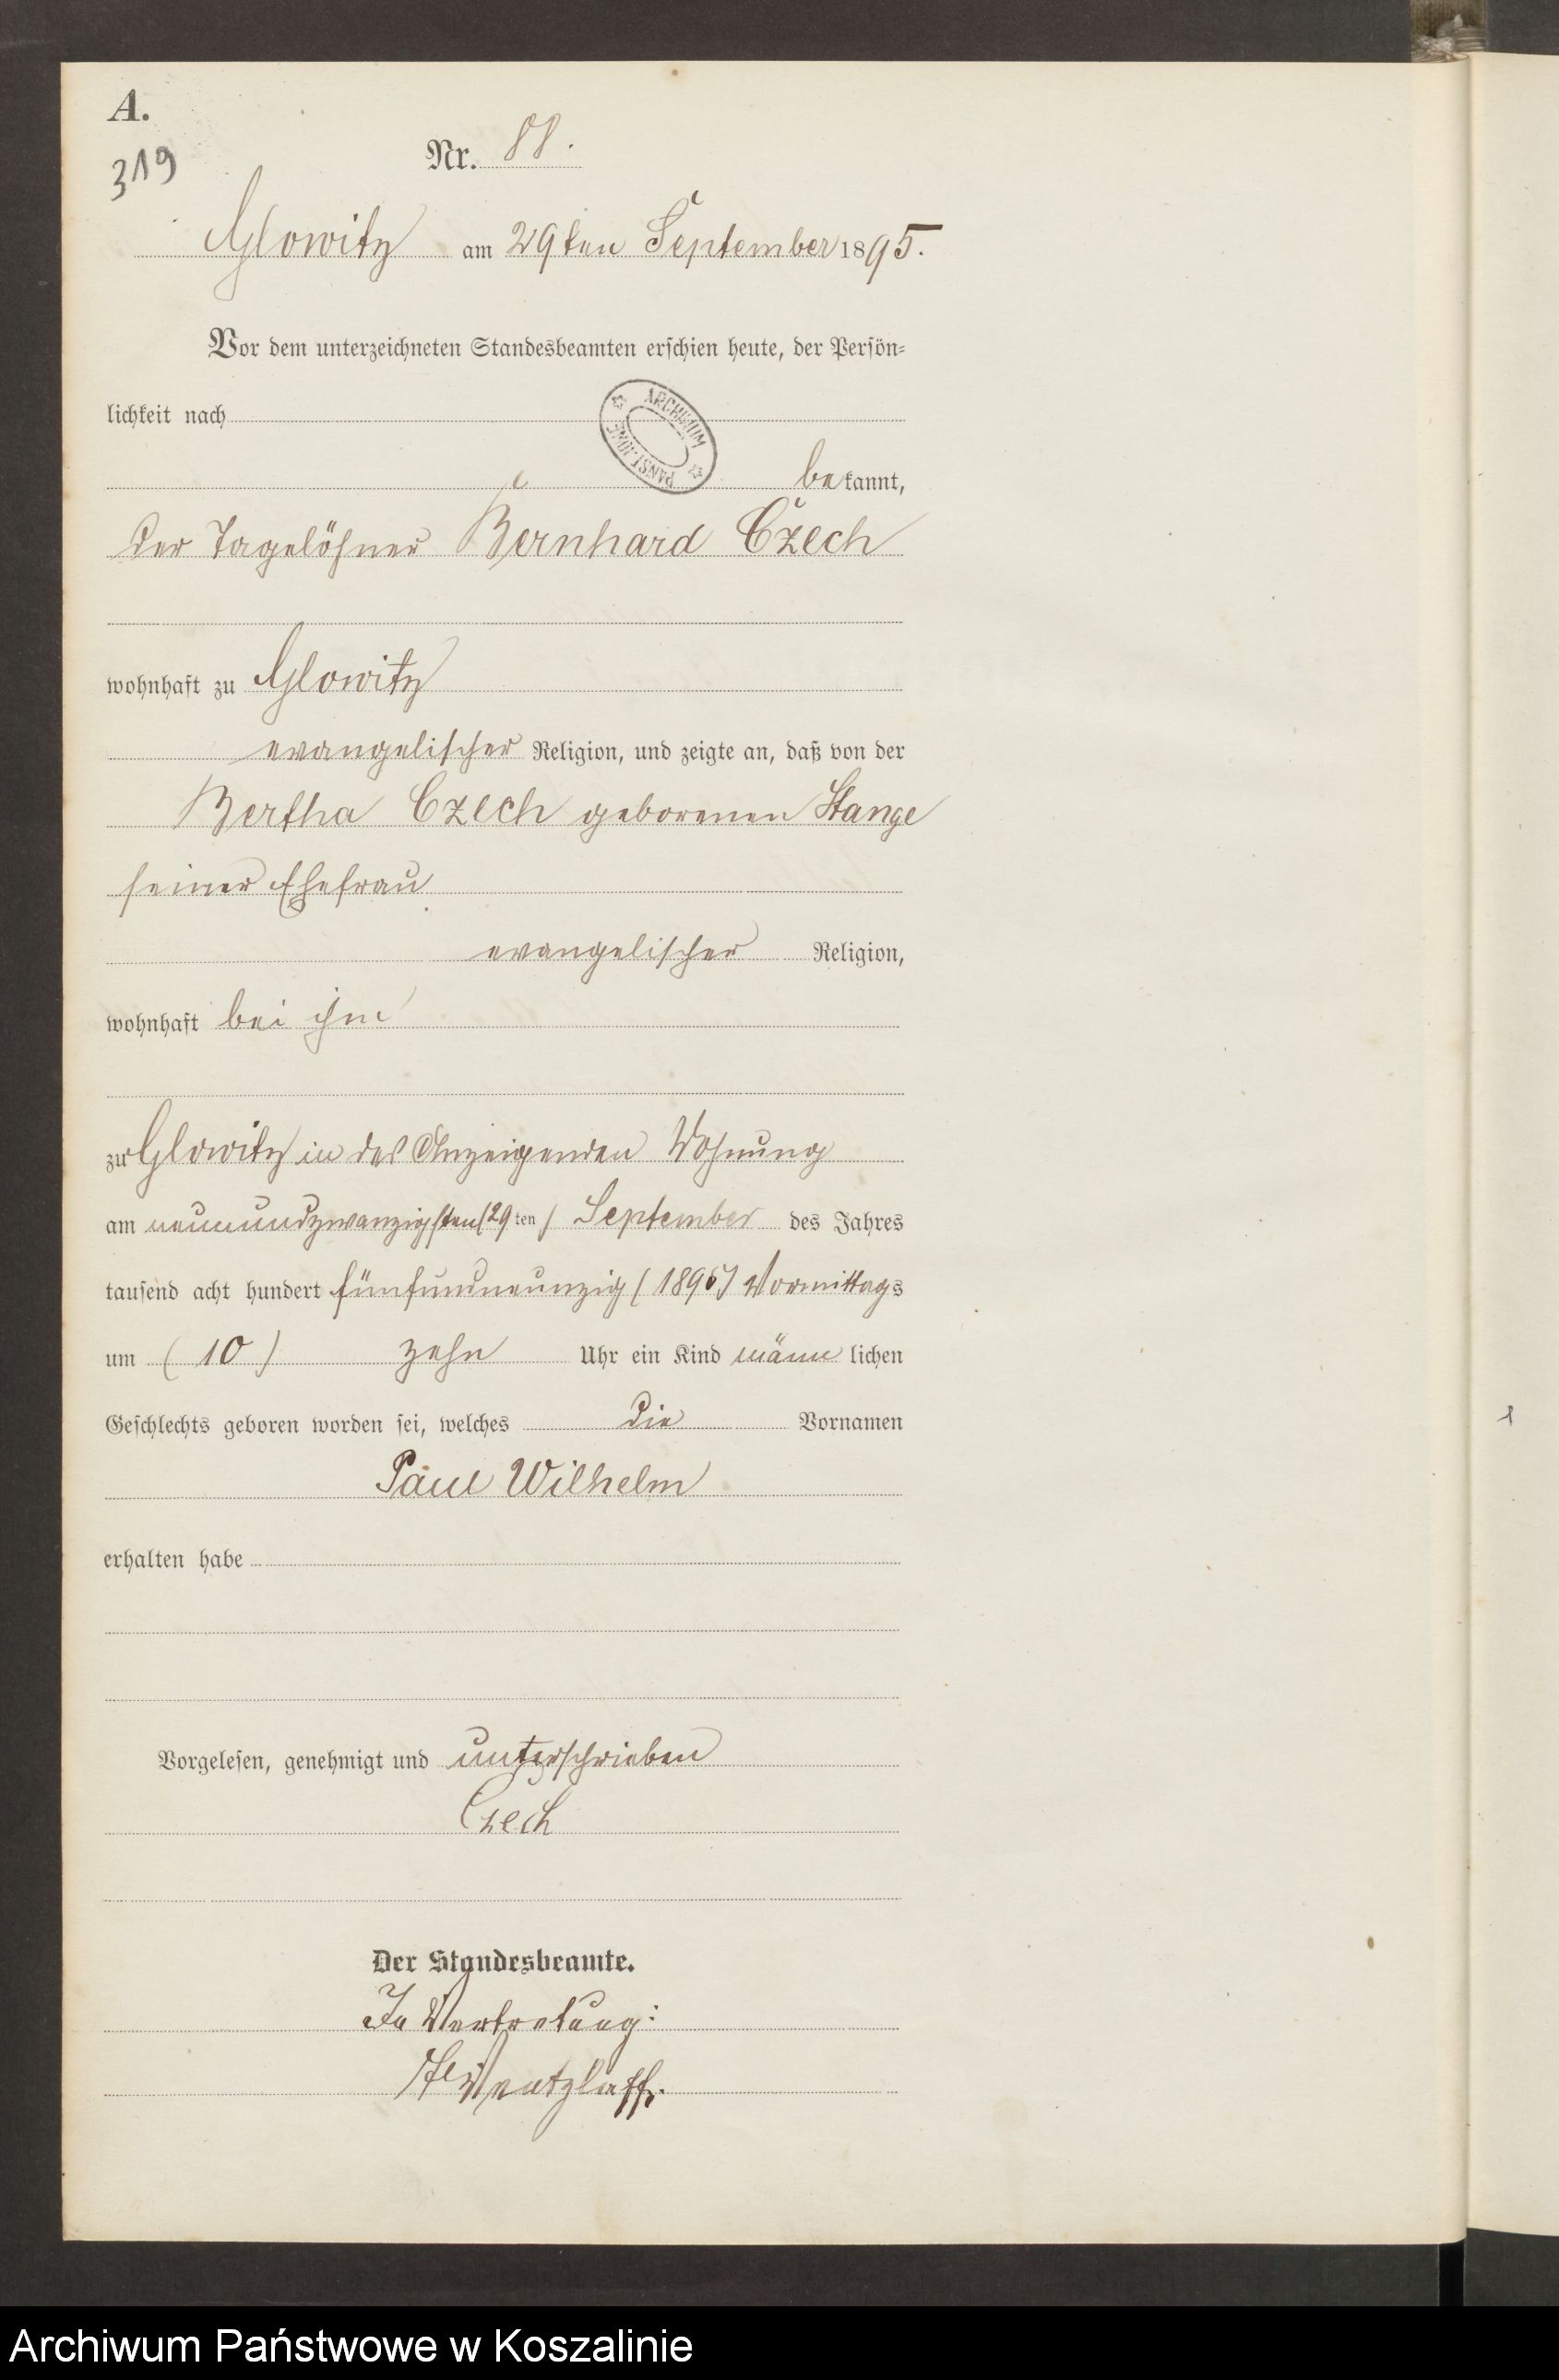 A.
319
Nr. 88.
Glowitz am 29ten September 1895.
Vor dem unterzeichneten Standesbeamten erschien heute, der Persön-
lichkeit nach
ARCHIWUM PAŃSTWOWE
bekannt,
der Tagelöhner Bernhard Czech
wohnhaft zu Glowitz
evangelischer Religion, und zeigte an, daß von der
Bertha Czech geborenen Stange
seiner Ehefrau
evangelischer Religion,
wohnhaft bei ihm
zu Glowitz in des Anzeigenden Wohnung
am neunundzwanzigsten (29ten) September des Jahres
tausend acht hundert fünfundneunzig (1895) Vormittags
um (10) zehn Uhr ein Kind männlichen
Geschlechts geboren worden sei, welches die Vornamen
Paul Wilhelm
erhalten habe
Vorgelesen, genehmigt und unterschrieben
Czech
Der Standesbeamte.
In Vertretung:
Wentzlaff.
1
Archiwum Państwowe w Koszalinie